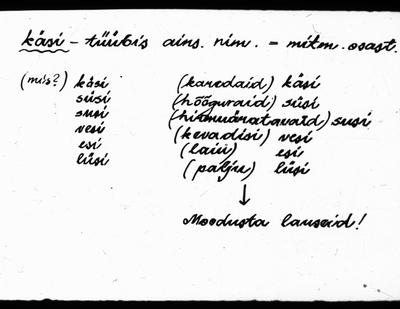 käsi - tüübis ains. nim. = mitm. osast.
(mis?) käsi (karedaid) käsi
süsi (hõõguvaid) süsi
susi (hirmuäratavaid) susi
vesi (kevadisi) vesi
esi (laiu) esi
lüsi (palju) lüsi
Moodusta lauseid!